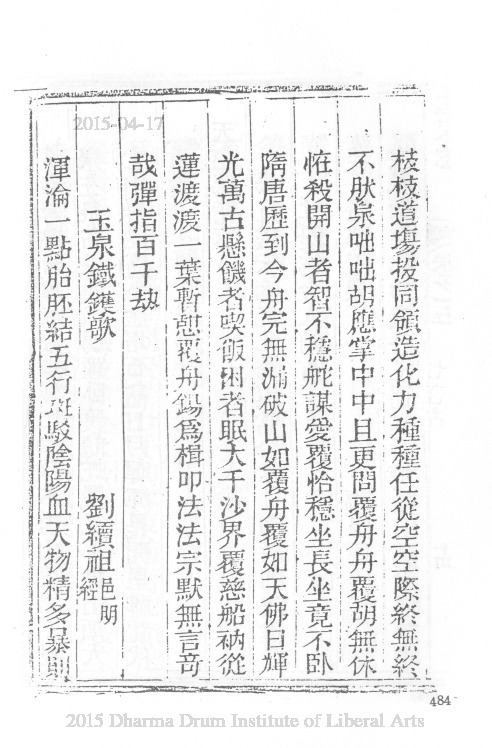 枝枝道塲投同領造化力種種任從空空際終無終
不肰泉咄咄胡應掌中中且更問覆舟舟覆胡無休
恠殺開山者智不穩舵謀愛覆恰穩坐長坐竟不卧
隋唐歷到今舟完無漏破山如覆舟覆如天佛日輝
光萬古懸饑者喫飯困者眠大千沙界覆慈船衲從
蓮渡渡一葉暫憇覆舟錫爲楫叩法法宗默無言奇
哉彈指百千劫
玉泉鐵鑊歌
劉續祖 邑明經
渾淪一點胎胚結五行斑駁陰陽血天物精多暴
484
2015-04-17
2015 Dharma Drum Institute of Liberal Arts